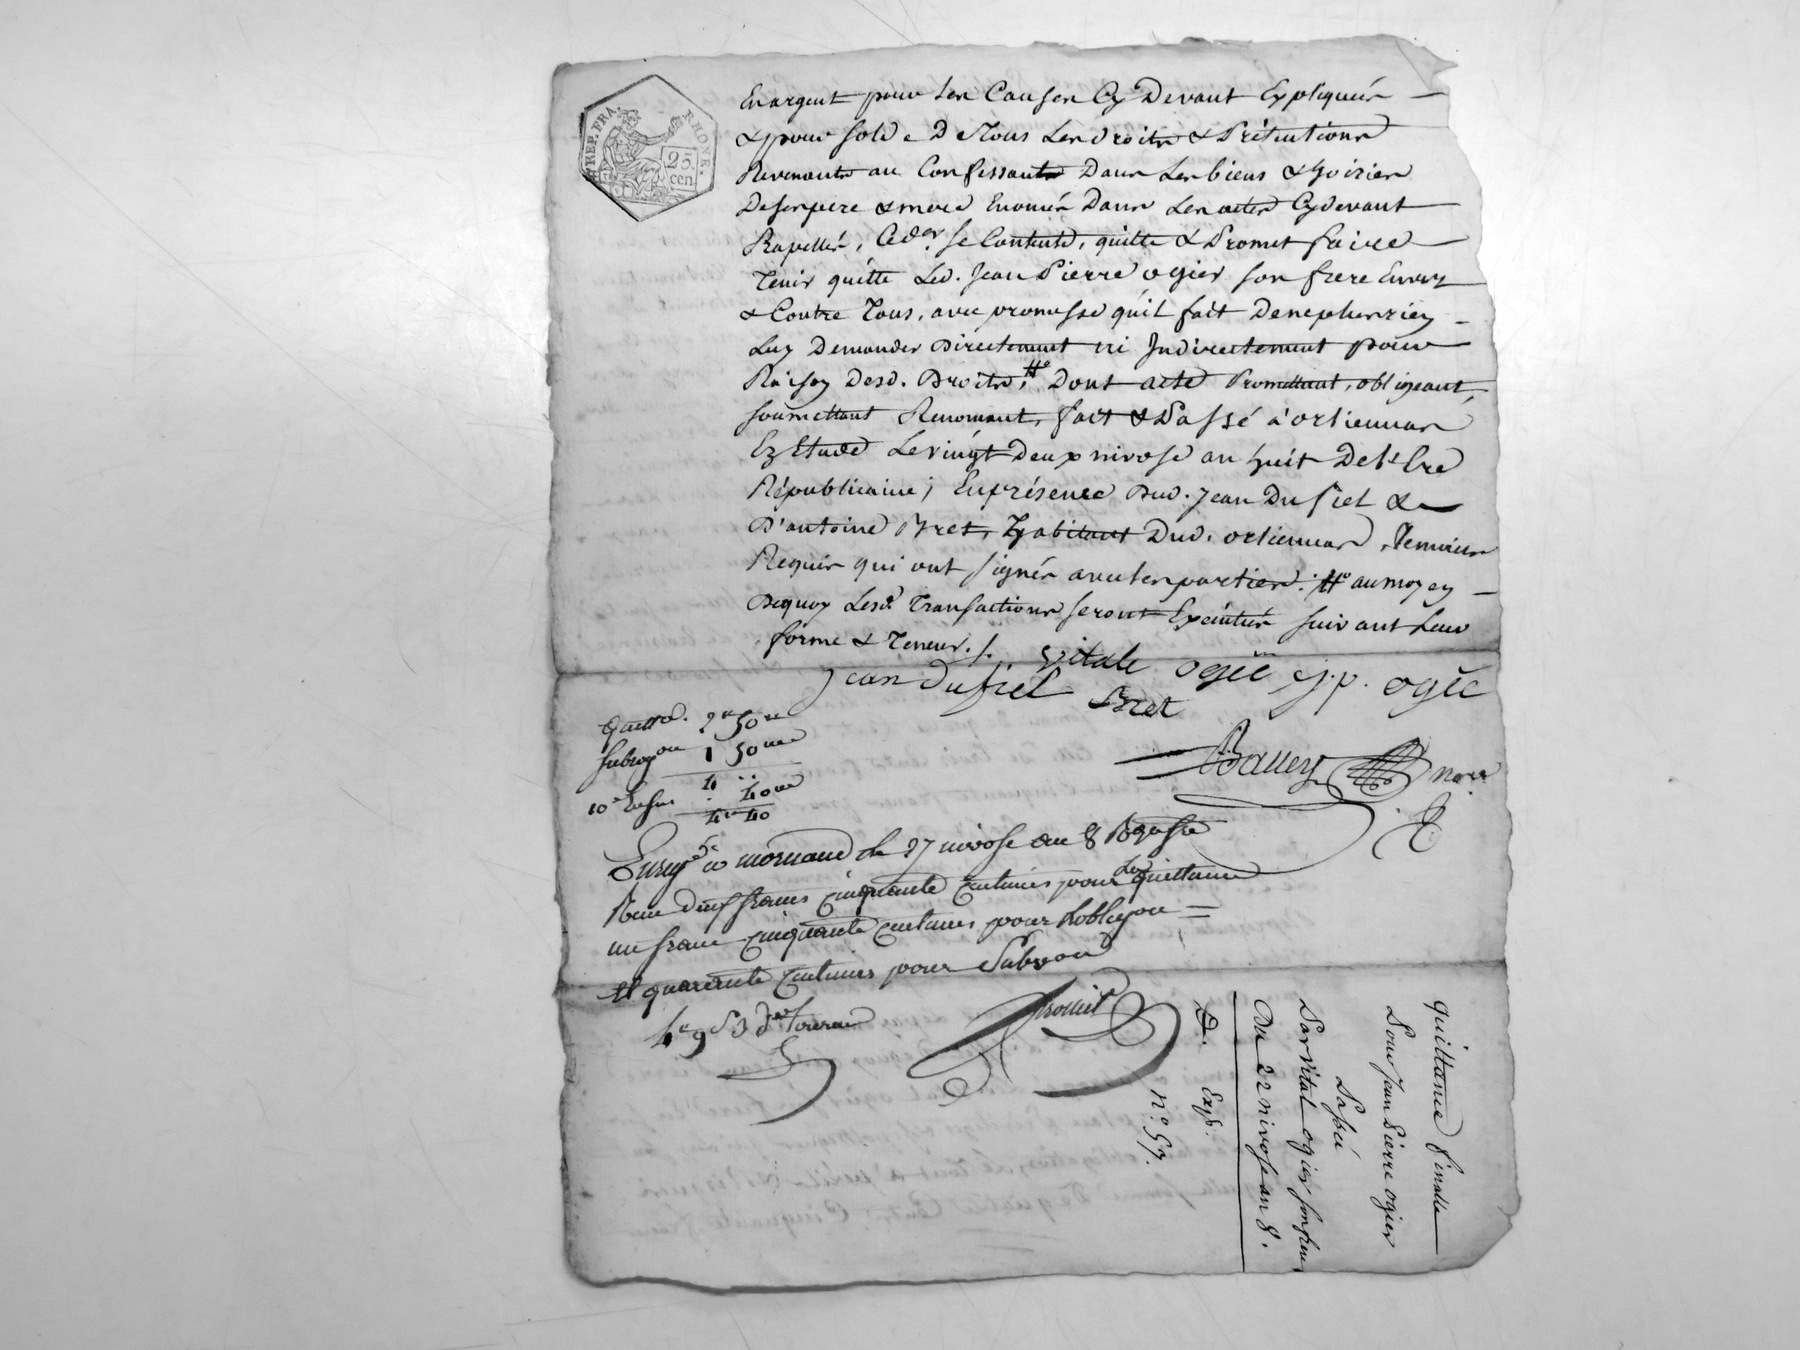 REP. FRA.
RHONE.
25
cen.
En argent pour les Causes Cy Devant Expliqués
& pour solde De Tous Les droits & Prétentions
Revenants au Confessant Dans Les biens & hoiries
De ses pere & mere Enoncés Dans Les actes Cy devant
Rapellés, Se Contente, quitte & Promet faire
Tenir quitte Led. Jean Pierre ogier son frere Envers
& Contre Tous, avec promesse qu'il fait De ne plus rien
Luy Demander Directement ni Indirectement pour
Raison Desd. Droits, # Dont acte Promettant, obligeant,
soumettant Renonçant, fait & Passé à orliennas
En Etude Le vingt Deux nivose an huit De l'Ere
Républicaine; En présence Dud. Jean Dufiel &
D'antoine Bret, habitant Dud. orliennas, Temoins
Requis qui ont signés avec les parties. # au moyen
De quoy Lesd. Transactions seront Exécutés suivant Leur
forme & Teneur./.
vitale ogié j.p. ogié
Jean Dufiel Bret
Quittce. 2 50
1 50
4
10e 40
4 40
Enregé à mornand le 27 nivose an 8 
Reçu deux francs cinquante centimes pour La quittance
un franc cinquante centimes pour
et quarante centimes pour
quittance finalle
Pour Jean Pierre ogier
Passé
Par vital ogier son frere
Du 22 nivose an 8.
Exp.
n° 57.